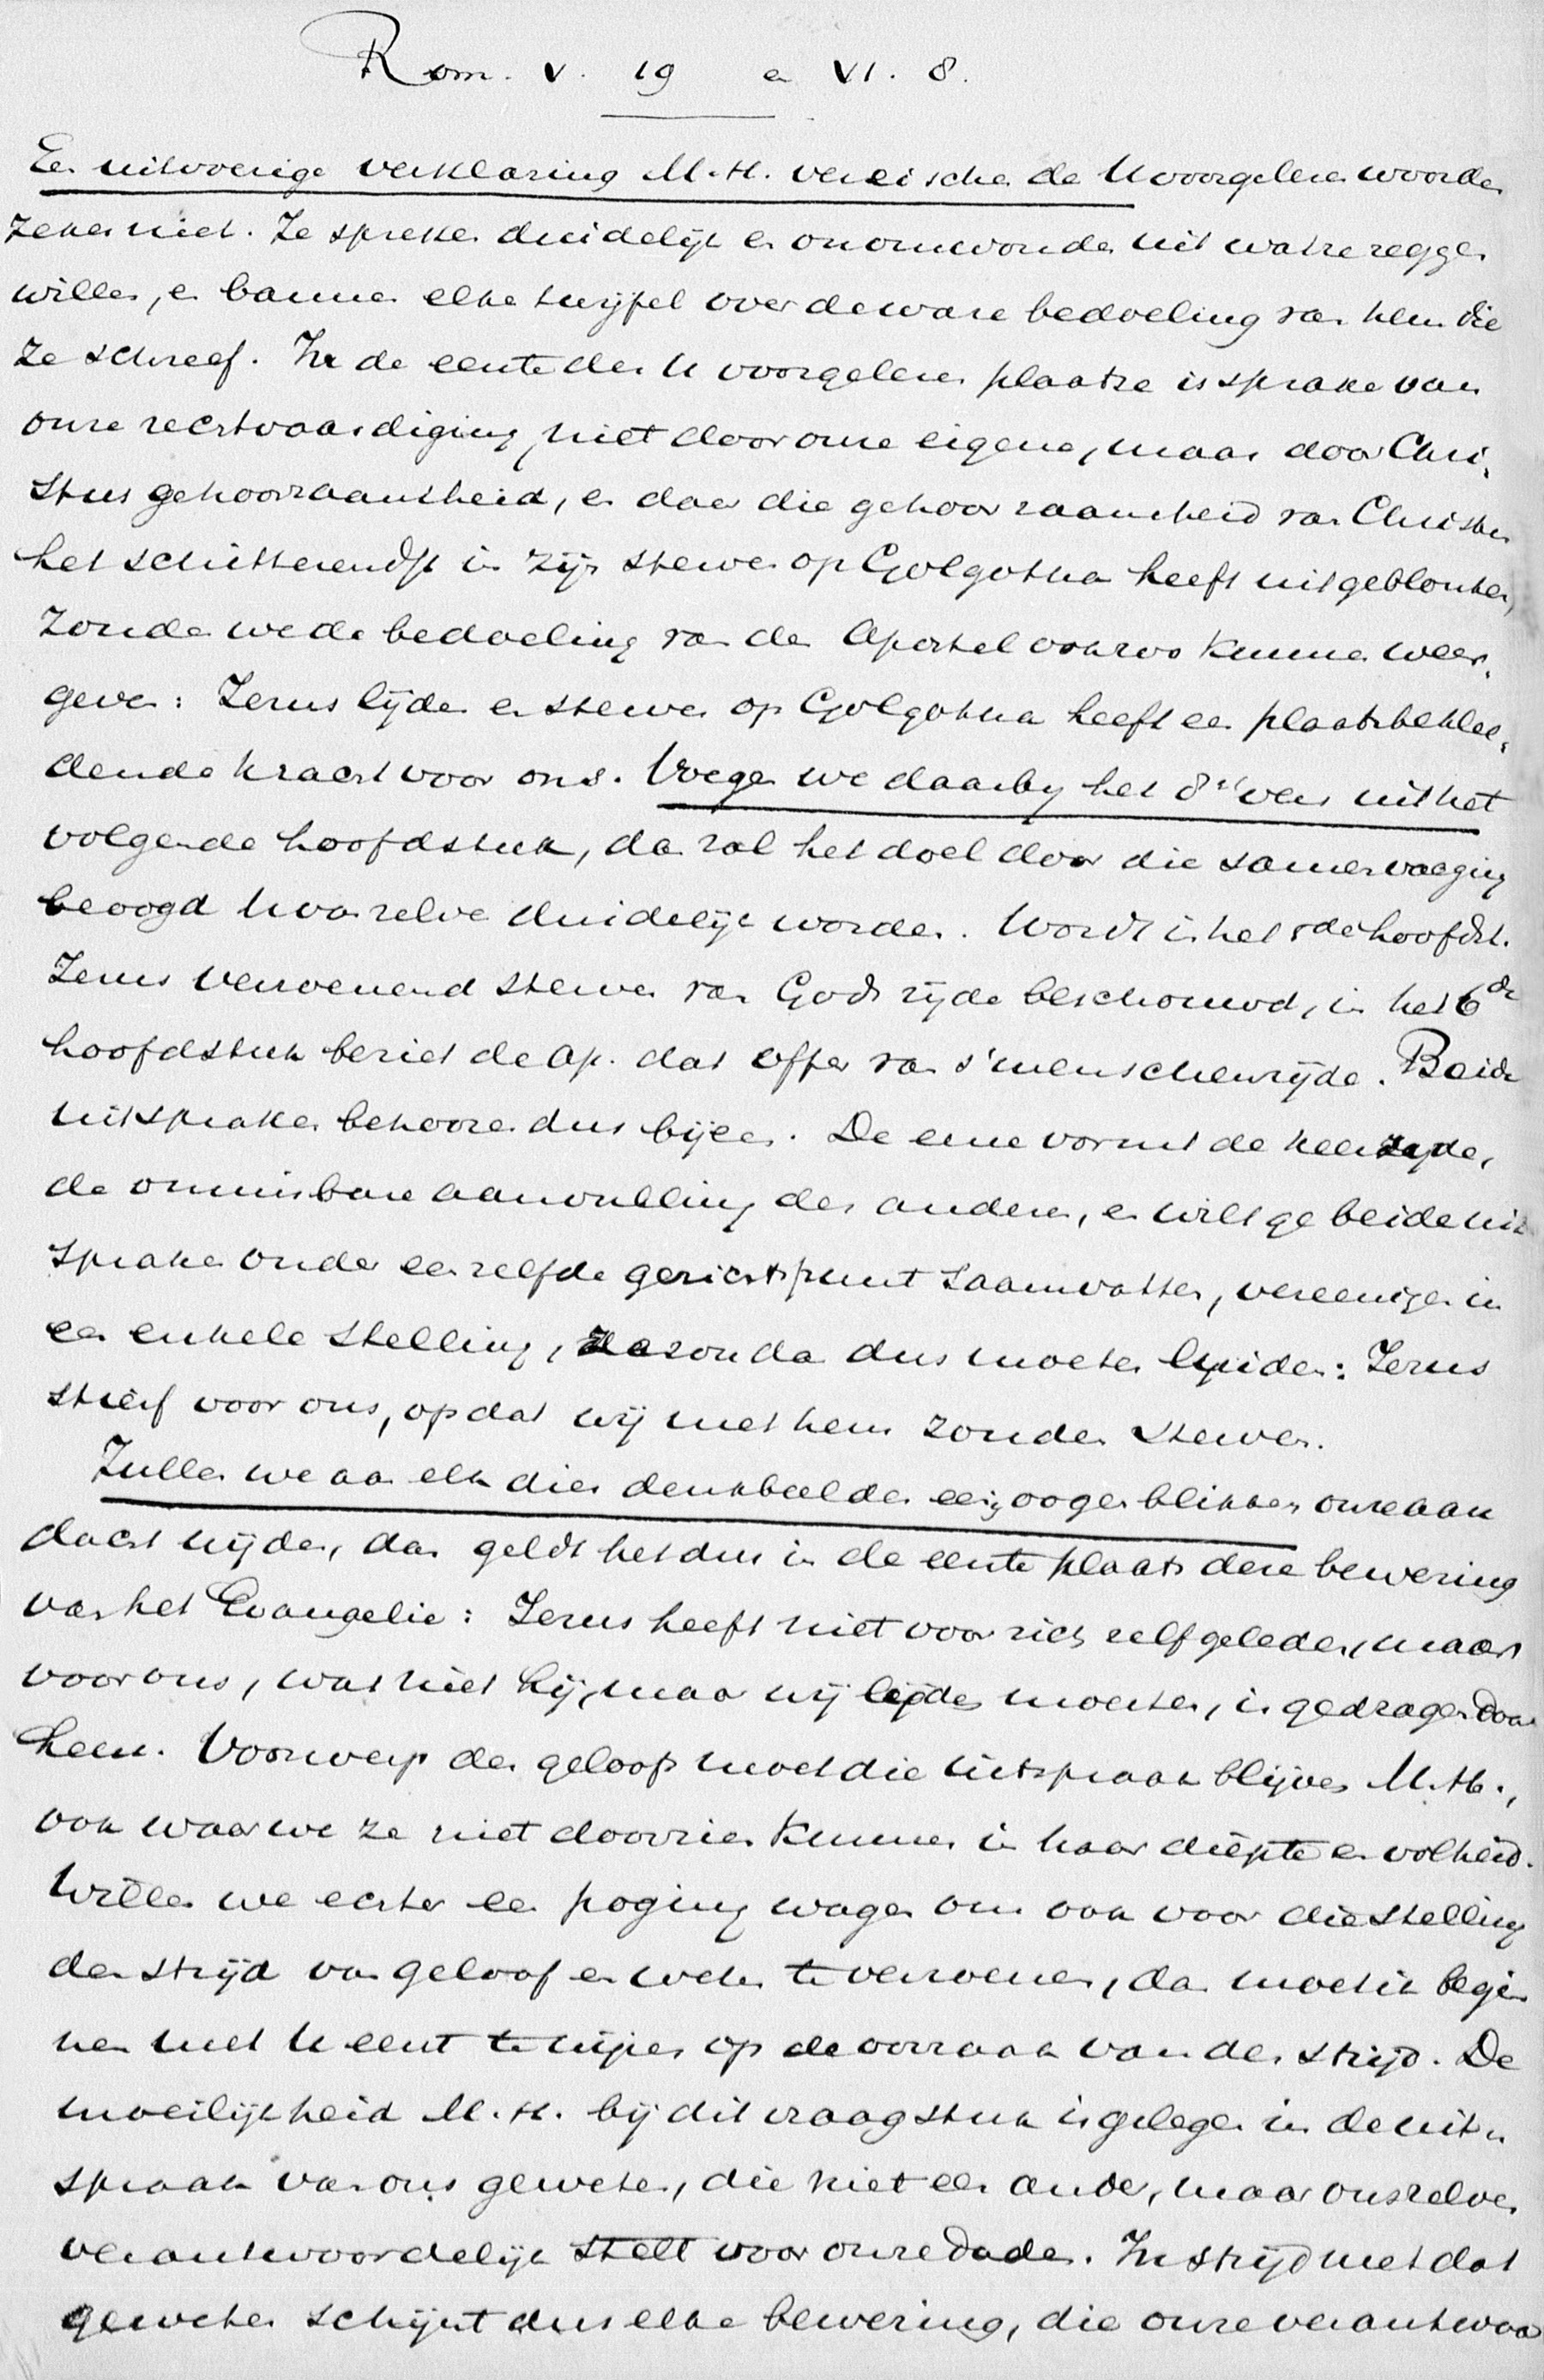 Rom. V. 19 en VI. 8.
Een uitvoerige verklaring M.H. vereischen de U voorgelezen woorden
zeker niet. Ze spreken duidelijk en onomwonden uit wat ze zeggen
willen, en bannen elke twijfel over de ware bedoeling van hem die
ze schreef. In de eerste der U voorgelezen plaatsen is sprake van
onze rechtvaardiging, niet door onze eigene, maar door Chri-
stus gehoorzaamheid, en daar die gehoorzaamheid van Christus
het schitterendst in zijn sterven op Golgotha heeft uitgeblonken,
zouden we de bedoeling van den Apostel ook zoo kunnen weer-
geven: Jezus lijden en sterven op Golgotha heeft een plaatsbeklee-
dende kracht voor ons. Voegen we daarbij het 8ste vers uit het
volgende hoofdstuk, dan zal het doel door die samenvoeging
beoogd U van zelve duidelijk worden. Wordt in het 5de hoofdst.
Jezus verzoenend sterven van Gods zijde beschouwd, in het 6de
hoofdstuk beziet de Ap. dat offer van s'menschenzijde. Beide
uitspraken behooren dus bijeen. De eene vormt de keerzijde,
de onmisbare aanvulling der andere, en wilt ge beide uit-
spraken onder eenzelfde gezichtspunt saamvatten, vereenigen in
een enkele stelling, ze zou dan dus moeten luiden: Jezus
stierf voor ons, opdat wij met hem zouden sterven.
Zullen we aan elk dier denkbeelden eenige oogenblikken onze aan
dacht wijden, dan geldt het dus in de eerste plaats deze bewering
van het Evangelie: Jezus heeft niet voor zich zelf geleden, maar
voor ons, wat niet hij, maar wij lijden moesten, is gedragen door
hem. Voorwerp des geloofs moet die uitspraak blijven M.H.,
ook waar we ze niet doorzien kunnen in haar diepte en volheid.
Willen we echter een poging wagen om ook voor die stelling
den strijd van geloof en weten te verzoenen, dan moet ik begin
nen met U eerst te wijzen op de oorzaak van den strijd. De
moeilijkheid M.H. bij dit vraagstuk is gelegen in de uit-
spraak van ons geweten, die niet een ander, maar ons zelven
verantwoordelijk stelt voor onze daden. In strijd met dat
geweten schijnt dus elke bewering, die onze verantwoor